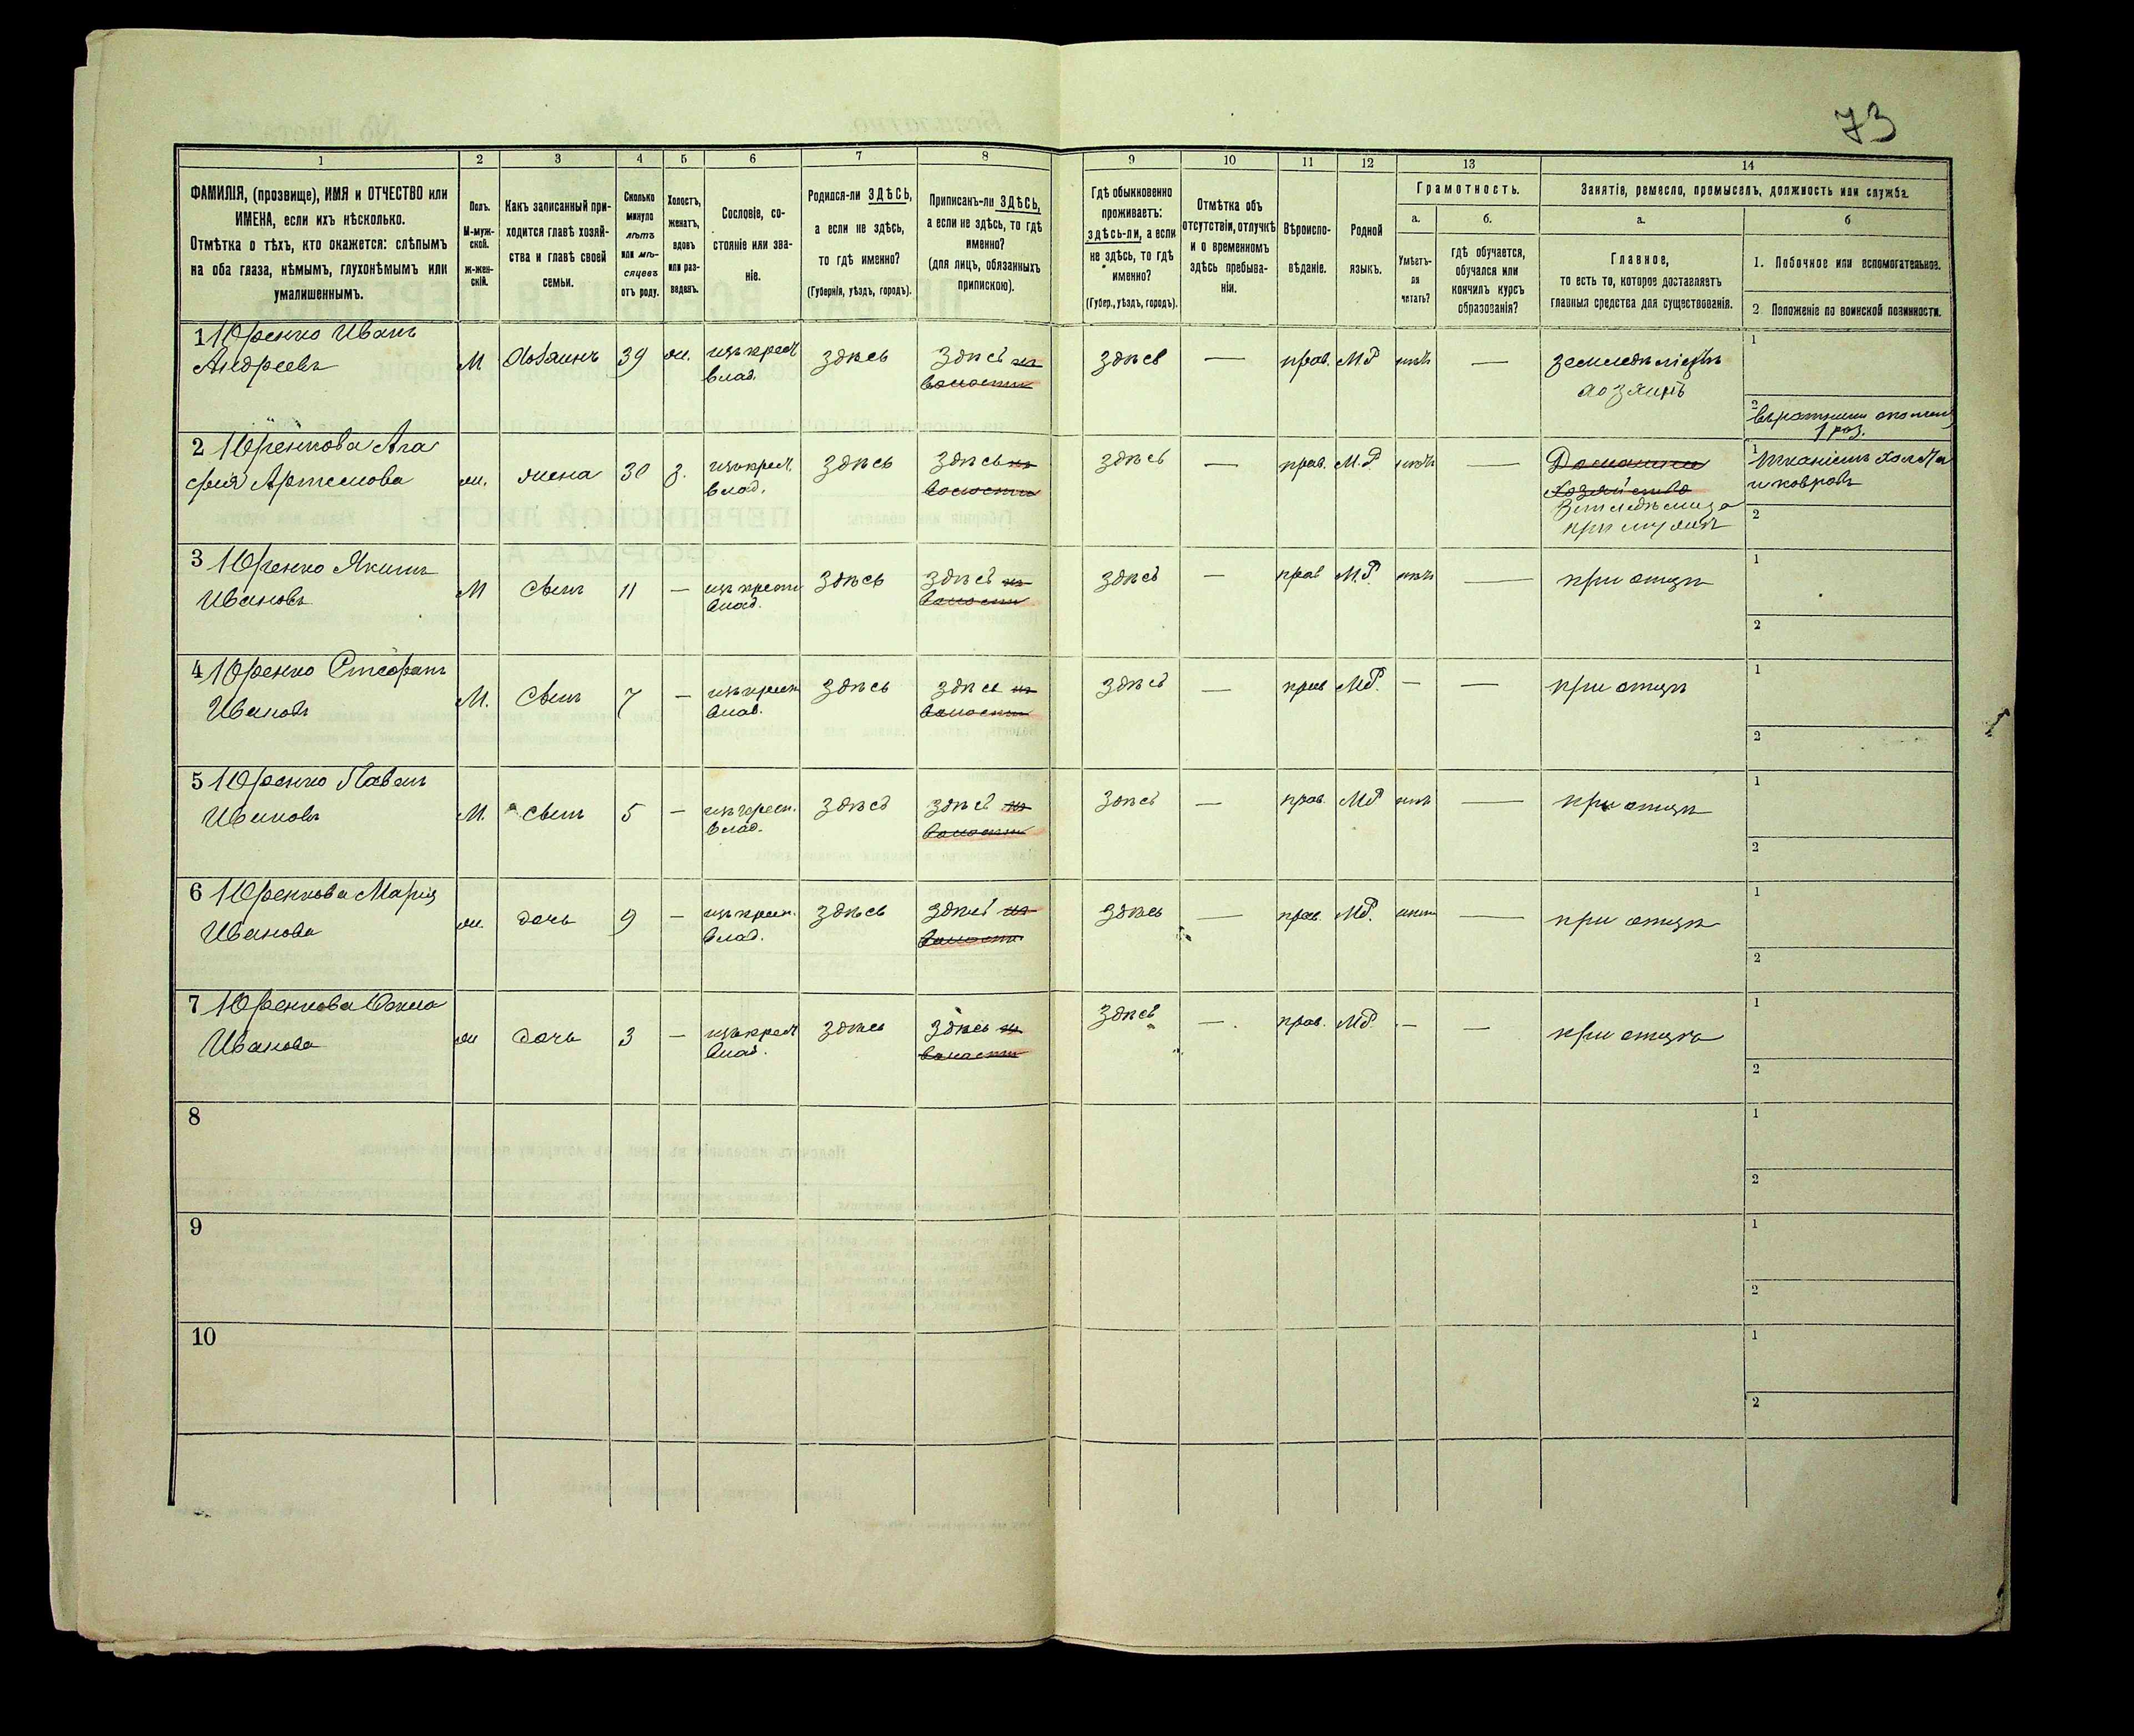 73
1 2 3 4 5 6 7 8 9 10 11 12 13 14
ФАМИЛІЯ, (прозвище), ИМЯ и ОТЧЕСТВО или
ИМЕНА, если ихъ нѣсколько.
Отмѣтка о тѣхъ, кто окажется: слѣпымъ
на оба глаза, нѣмымъ, глухонѣмымъ или
умалишеннымъ.
Полъ.
М-муж-
ской.
ж-жен-
скій.
Какъ записанный при-
ходится главѣ хозяй-
ства и главѣ своей
семьи.
Сколько
минуло
лѣтъ
или мѣ-
сяцевъ
отъ роду.
Холостъ,
женатъ,
вдовъ
или раз-
веденъ.
Сословіе, со-
стояніе или зва-
ніе.
Родился-ли ЗДѢСЬ,
а если не здѣсь,
то гдѣ именно?
(Губернія, уѣздъ, городъ).
Приписанъ-ли ЗДѢСЬ,
а если не здѣсь, то гдѣ
именно?
(для лицъ, обязанныхъ
припискою).
Гдѣ обыкновенно
проживаетъ:
здѣсь-ли, а если
не здѣсь, то гдѣ
именно?
(Губер., уѣздъ, городъ).
Отмѣтка объ
отсутствіи, отлучкѣ
и о временномъ
здѣсь пребыва-
ніи.
Вѣроиспо-
вѣданіе.
Родной
языкъ.
Грамотность.
а.
Умѣетъ-
ли
читать?
б.
гдѣ обучается,
обучался или
кончилъ курсъ
образованія?
Занятіе, ремесло, промыселъ, должность или служба.
а.
Главное,
то есть то, которое доставляетъ
главныя средства для существованія.
б
1. Побочное или вспомогательное.
2. Положеніе по воинской повинности.
1 Юренко Иванъ
Андреевъ
М Хозяинъ 39 ж. изъ крест
влад. здѣсь здѣсь из
волости здѣсь — прав. М.Р нѣтъ — земледѣліецъ
хозяинъ
1
2
1 раз.
2 Юренкова Ага
фия Артемова
ж. жена 30 з. изъ крест.
влад. здѣсь здѣсь из
волости здѣсь — прав. М.Р нѣтъ — Домашнее
хозяйство
при мужѣ
1 тканіемъ холста
и ковровъ
2
3 Юренко Якимъ
Ивановъ
М сынъ 11 — изъ крест
влад. здѣсь здѣсь из
волости здѣсь — прав М.Р. нѣтъ — при отцѣ
1
2
4 Юренко Стефанъ
Ивановъ
М. сынъ 7 — изъ крест
влад. здѣсь здѣсь из
волости здѣсь — прав М.Р. — — при отцѣ
1
2
5 Юренко Павелъ
Ивановъ
М. сынъ 5 — изъ крест.
влад. здѣсь здѣсь из
волости здѣсь — прав. М.Р нѣтъ — при отцѣ
1
2
6 Юренкова Мария
Иванова
ж. дочь 9 — изъ крест.
влад. здѣсь здѣсь из
волости здѣсь — прав. М.Р. нѣтъ — при отцѣ
1
2
7 Юренкова
Иванова
ж дочь 3 — изъ крест
влад. здѣсь здѣсь из
волости здѣсь — прав. М.Р. — — при отцѣ
1
2
8
1
2
9
1
2
10
1
2